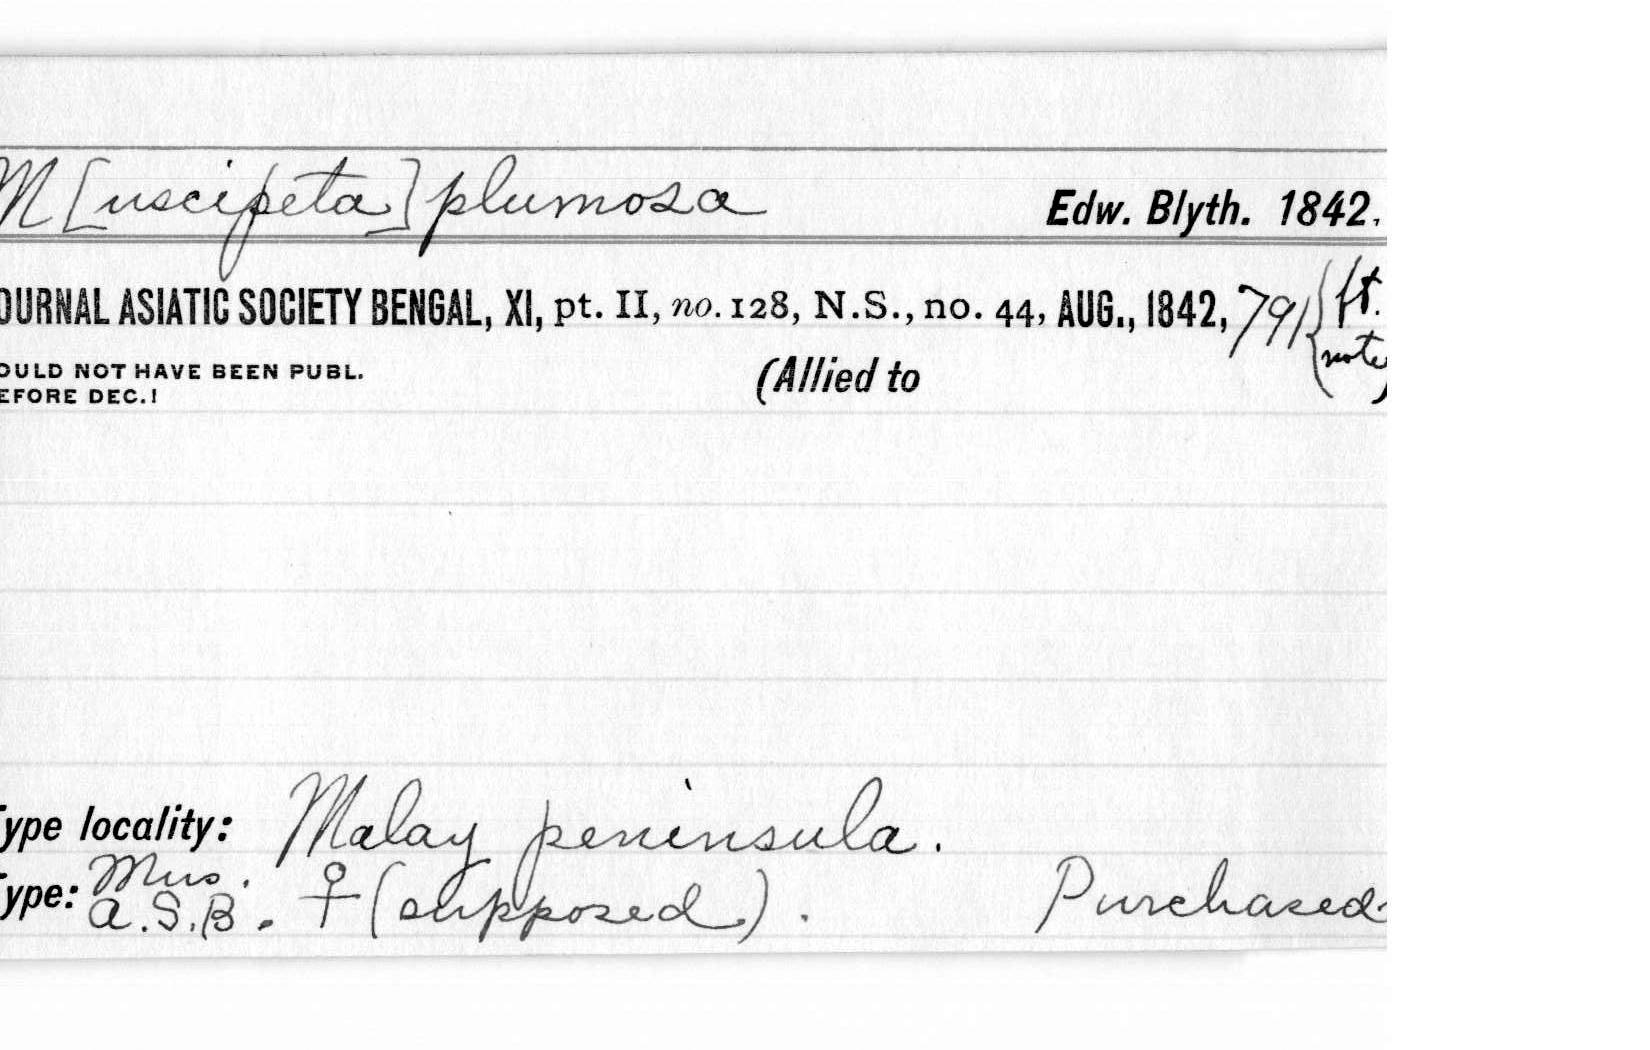 M[uscipeta] plumosa Edw. Blyth. 1842.
OURNAL ASIATIC SOCIETY BENGAL, XI, pt. II, no. 128, N.S., no. 44, AUG., 1842, 791 (ft. note)
OULD NOT HAVE BEEN PUBL. (Allied to
EFORE DEC.!
Type locality: Malay peninsula.
Type: Mus. A.S.B. ♀ (supposed). Purchased